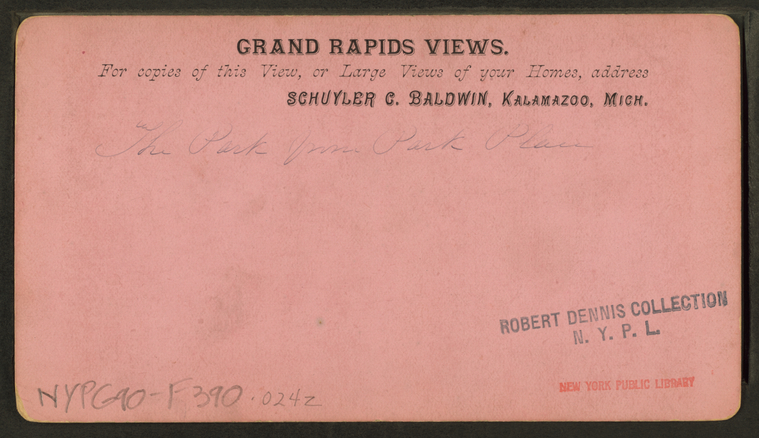 GRAND RAPIDS VIEWS.
For copies of this View, or Large Views of your Homes, address
SCHUYLER C. BALDWIN, KALAMAZOO, MICH.
The Park from Park Place
ROBERT DENNIS COLLECTION
N. Y. P. L.
NEW YORK PUBLIC LIBRARY
NYPG90-F390.024z